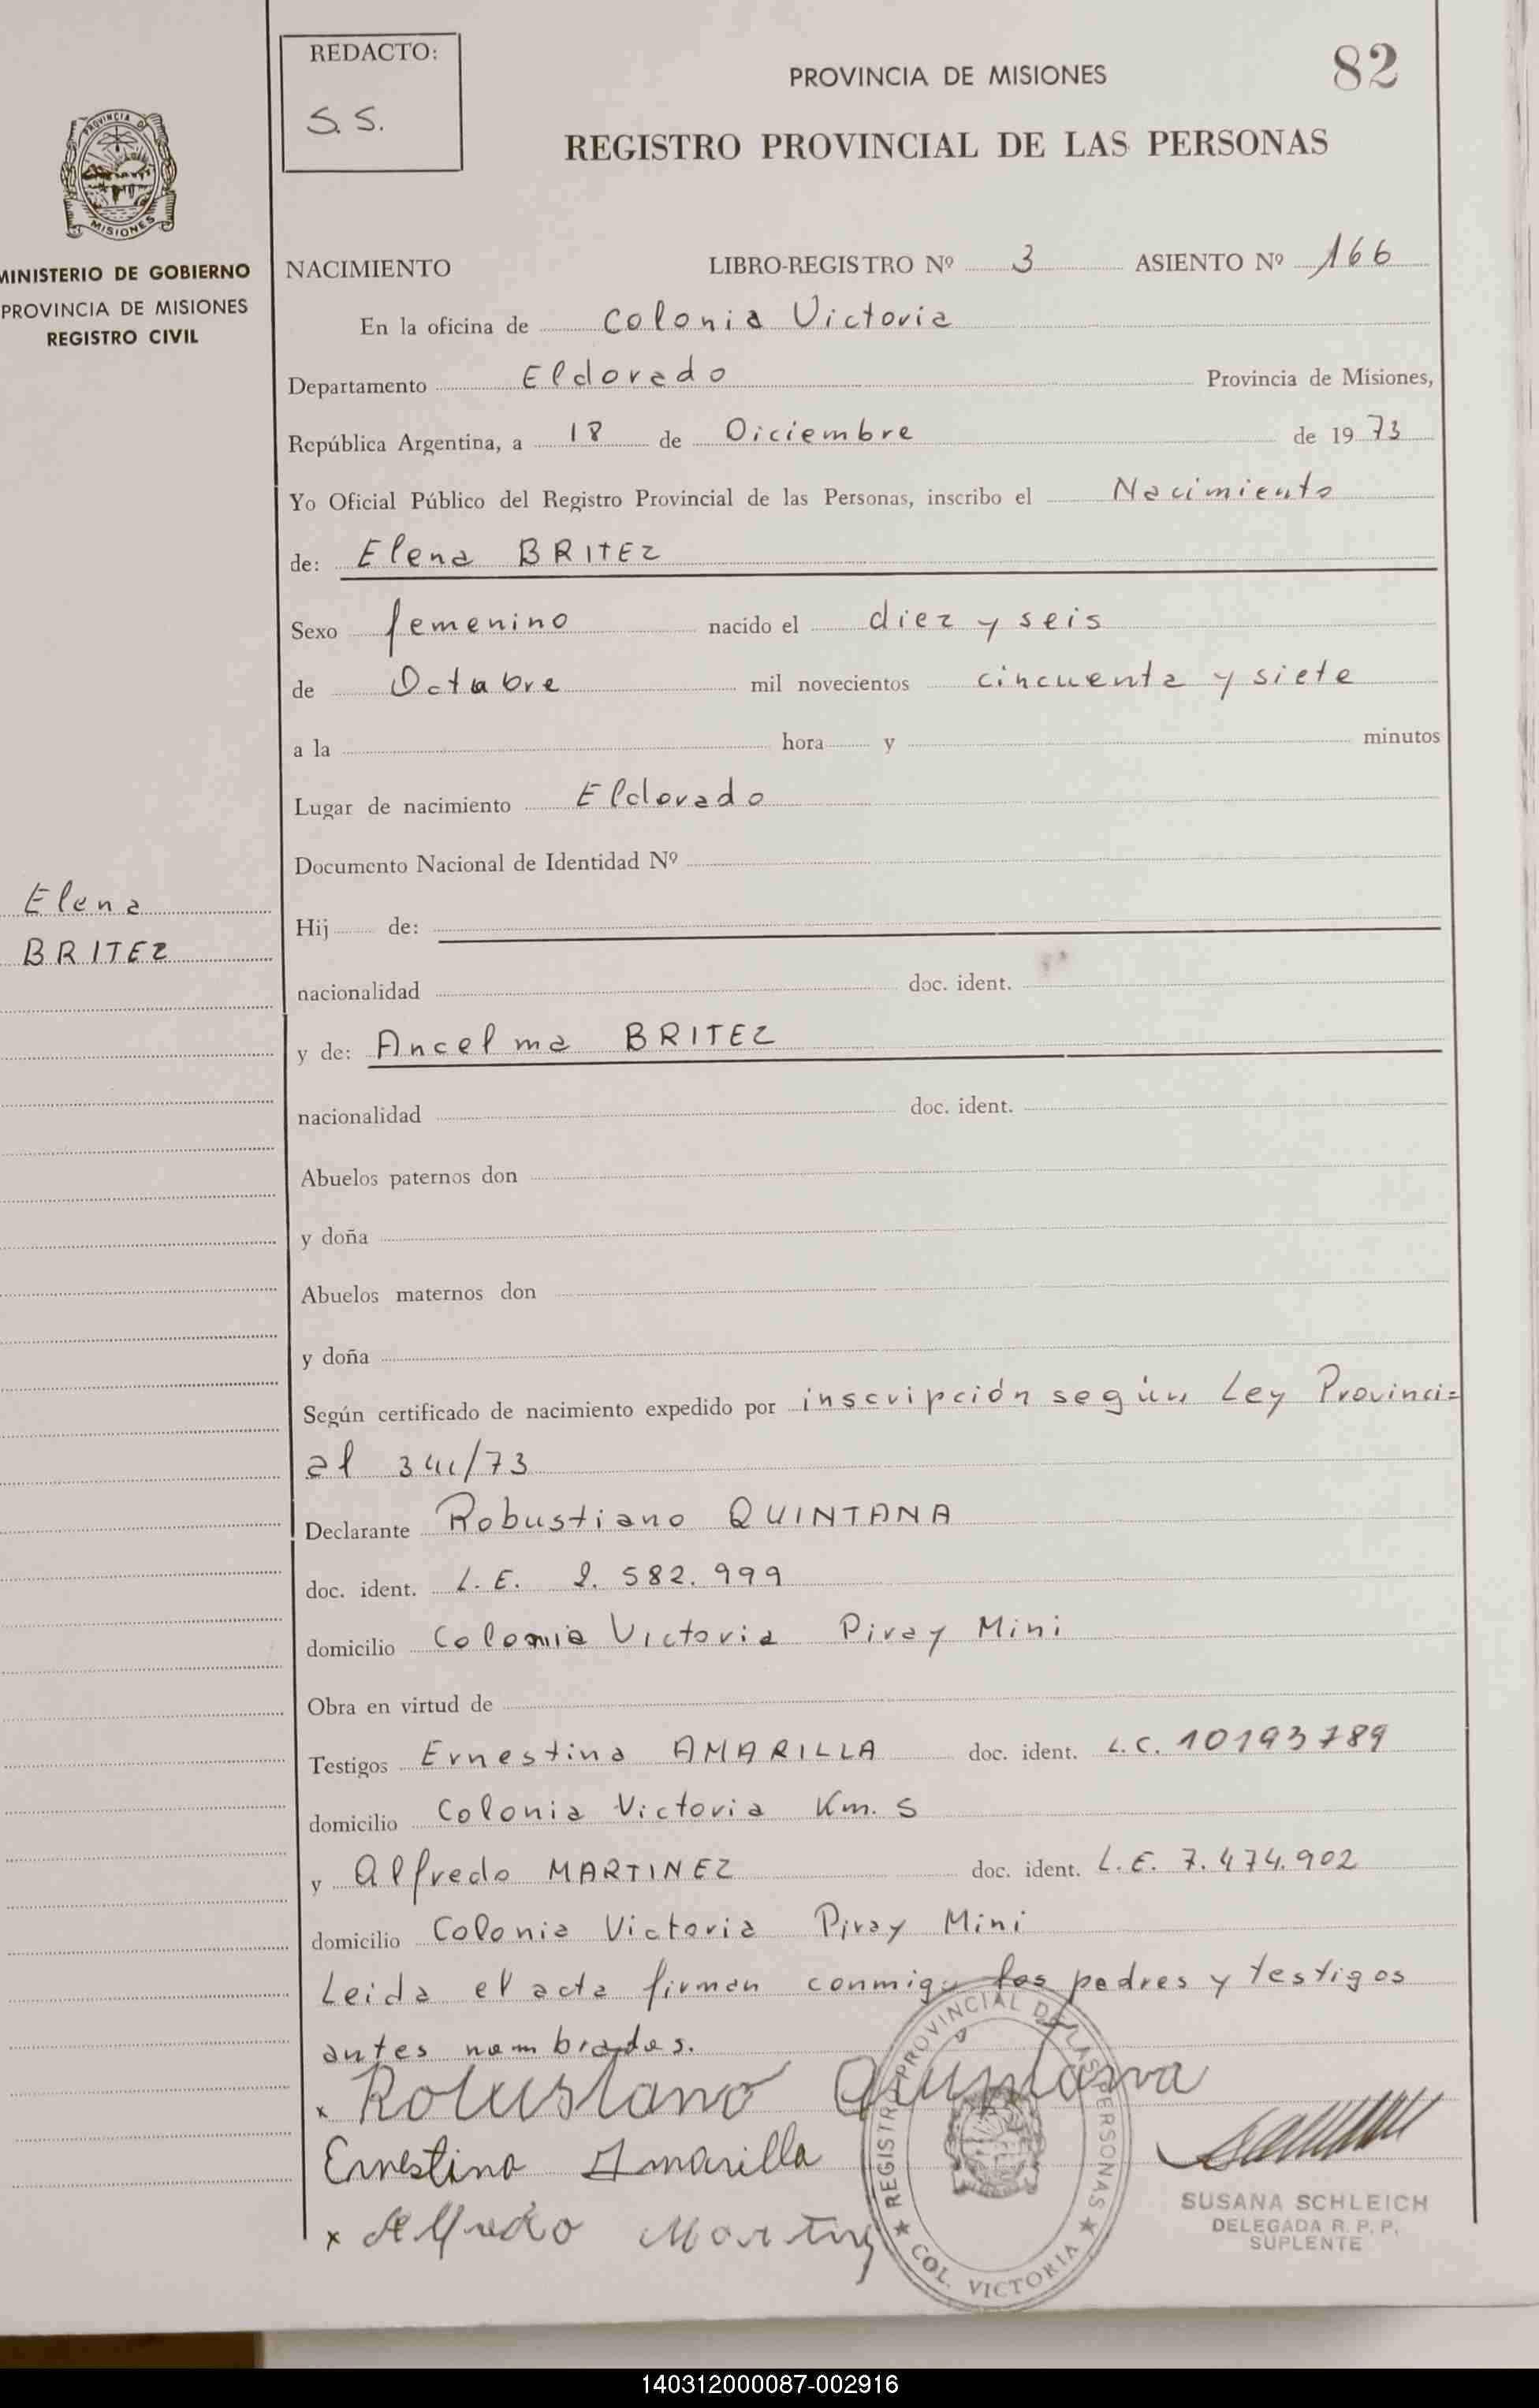 REDACTO:
S. S.
PROVINCIA DE MISIONES
82
REGISTRO PROVINCIAL DE LAS PERSONAS
PROVINCIA DE
MISIONES
MINISTERIO DE GOBIERNO
PROVINCIA DE MISIONES
REGISTRO CIVIL
NACIMIENTO LIBRO-REGISTRO Nº 3 ASIENTO Nº 166
En la oficina de Colonia Victoria
Departamento Eldorado Provincia de Misiones,
República Argentina, a 18 de Diciembre de 1973
Yo Oficial Público del Registro Provincial de las Personas, inscribo el Nacimiento
de: Elena BRITEZ
Sexo femenino nacido el diez y seis
de Octubre mil novecientos cincuenta y siete
a la hora y minutos
Lugar de nacimiento Eldorado
Documento Nacional de Identidad Nº
Elena
BRITEZ
Hij de:
nacionalidad doc. ident.
y de: Ancelma BRITEZ
nacionalidad doc. ident.
Abuelos paternos don
y doña
Abuelos maternos don
y doña
Según certificado de nacimiento expedido por inscripción según Ley Provinci=
al 341/73
Declarante Robustiano QUINTANA
doc. ident. L. E. 2. 582. 999
domicilio Colonia Victoria Piray Mini
Obra en virtud de
Testigos Ernestina AMARILLA doc. ident. L. C. 10193789
domicilio Colonia Victoria Km. 5
y Alfredo MARTINEZ doc. ident. L. E. 7.474.902
domicilio Colonia Victoria Piray Mini
Leida el acta firman conmigo los padres y testigos
antes nombrados.
x Robustiano Quintana
Ernestina Amarilla
x Alfredo Martinez
REGISTRO PROVINCIAL DE LAS PERSONAS
COL. VICTORIA
SUSANA SCHLEICH
DELEGADA R. P. P.
SUPLENTE
140312000087-002916